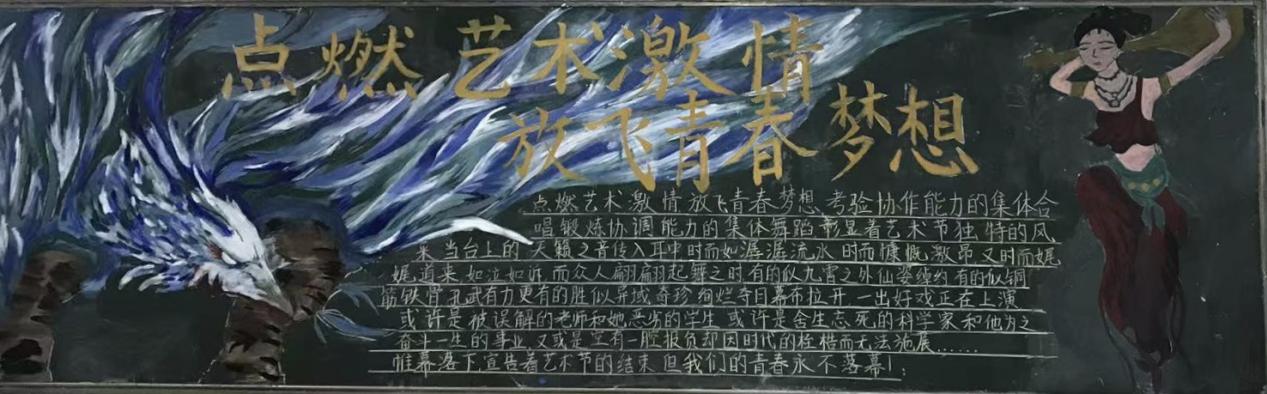 点燃艺术激情
放飞青春梦想
点燃艺术激情放飞青春梦想,考验协作能力的集体合
唱锻炼协调能力的集体舞蹈彰显着艺术节独特的风
采当台上的天籁之音传入耳中时而如潺潺流水时而慷慨激昂又时而娓
娓道来如泣如诉而众人翩翩起舞之时有的似九霄之外仙姿绰约有的似铜
筋铁骨孔武有力更有的胜似异域奇珍绚烂夺目幕布拉开一出好戏正在上演
或许是被误解的老师和她恶劣的学生或许是舍生忘死的科学家和他为之
奋斗一生的事业又或是空有一腔报负却因时代的桎梏而无法施展……
帷幕落下宣告着艺术节的结束但我们的青春永不落幕!